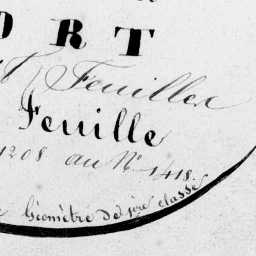 ORT
Feuilles
Feuille
1208 au N° 1418.
Géomètre de 1ère classe